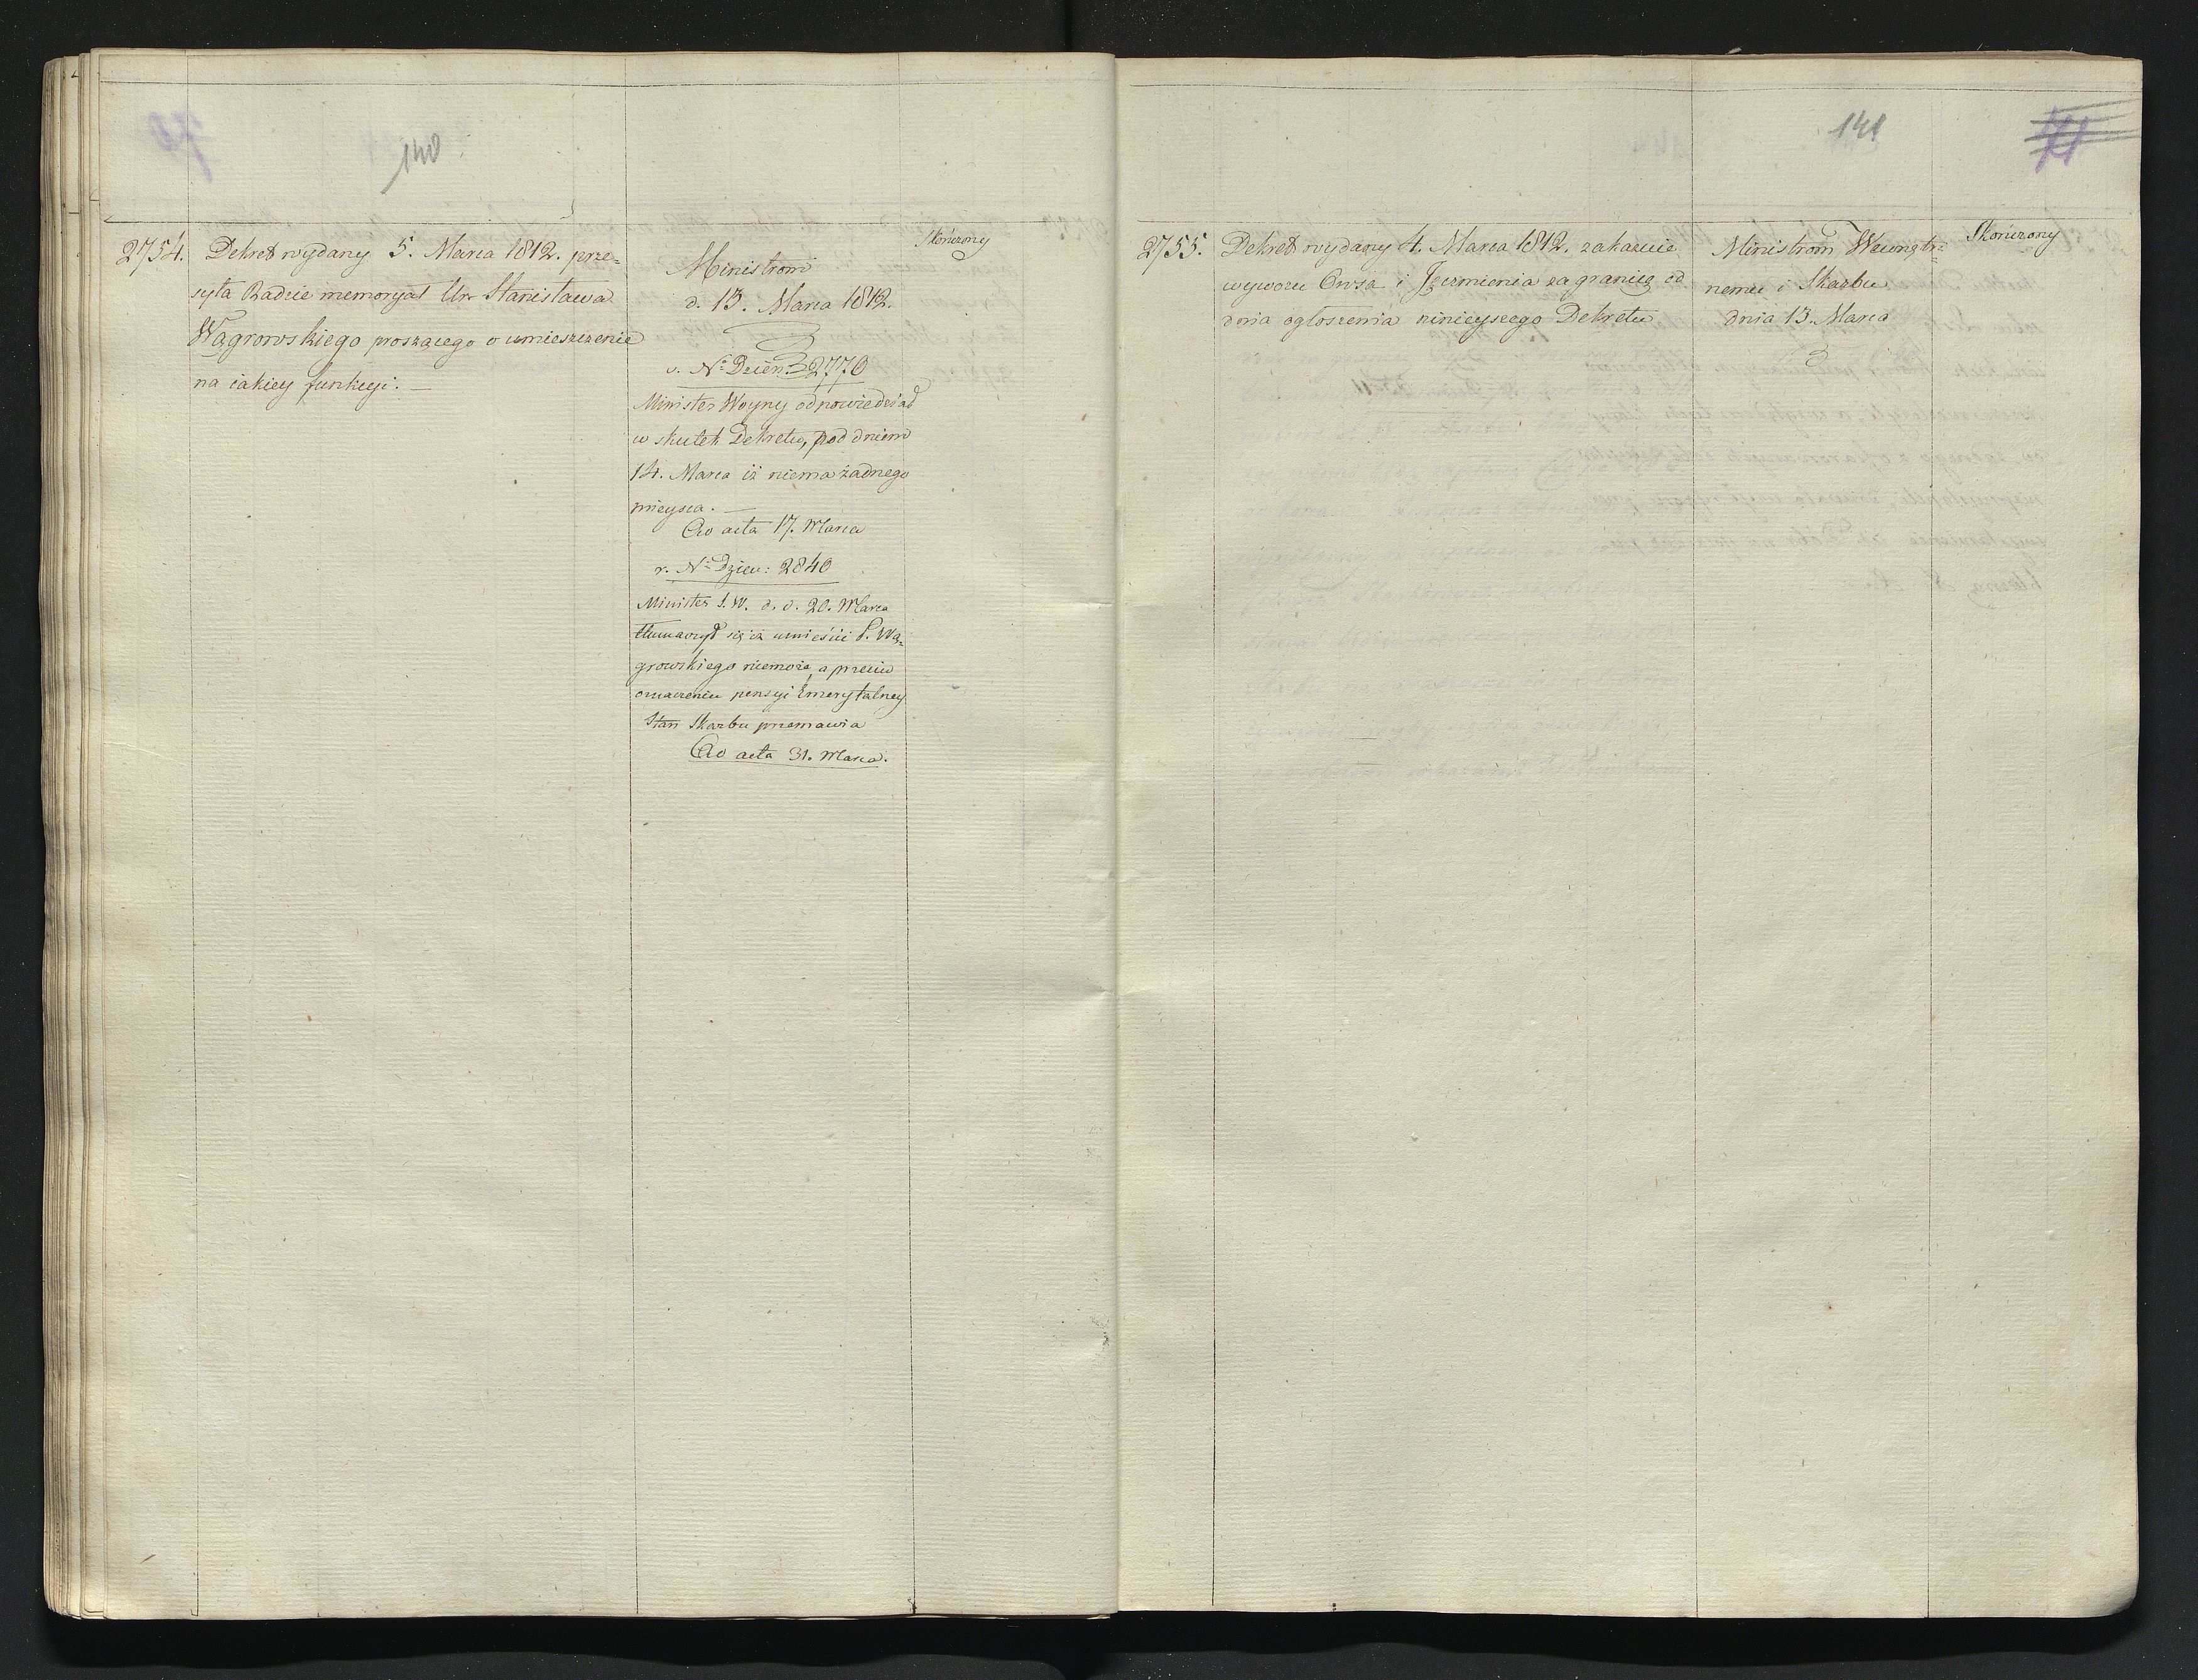 140
2754.
Dekret wydany 5. Marca 1812. prze-
syła Radzie memoryał Ur. Stanisława
Wągrowskiego proszącego o umieszczenie
na iakiey funkcyi. —
Ministrowi
d. 13. Marca 1812.
v. No Dzien: 2770
Minister Woyny odpowiedział
w skutek Dekretu, pod dniem
14. Marca iż niema żadnego
mieysca. —
Ad acta 17. Marca
v. No Dzien: 2840
Minister S. W. d. d. 20. Marca
tłumaczył się iż umieścić P. Wą-
growskiego niemoże, a przeciw
oznaczeniu pensyi Emerytalney
Stan Skarbu przemawia
Ad acta 31. Marca.
Skończony
141
71
2755.
Dekret wydany 4. Marca 1812. zakazuie
wywozu Owsa i Jęczmienia za granicę od
dnia ogłoszenia ninieyszego Dekretu
Ministrom Wewnętrz-
nemu i Skarbu
dnia 13. Marca
Skończony